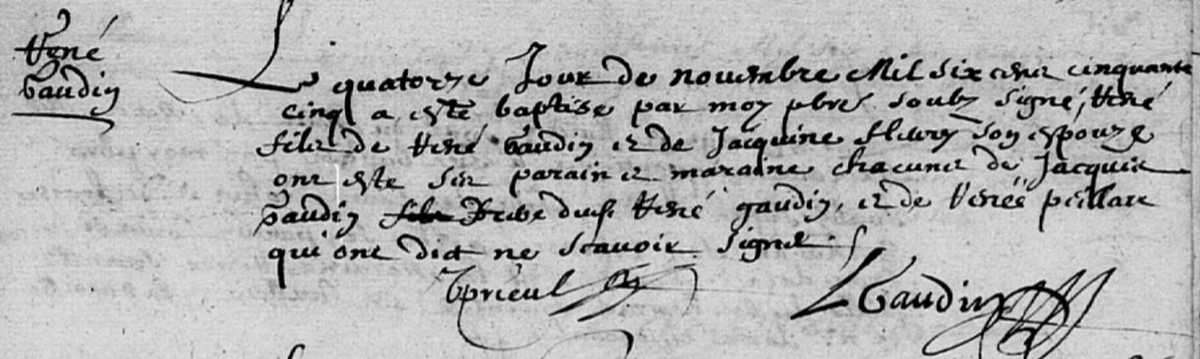 René
Gaudin
Le quatorze Jour de novembre Mil six cent cinquante
cinq a esté baptisé par moy pbre soubz signé, René
filz de René Gaudin et de Jacquine fleury son espouze
ont esté ses parain et maraine chacuns de Jacques
Gaudin frere dud. René gaudin, et de Renée
qui ont dict ne scavoir signer.
Gaudin